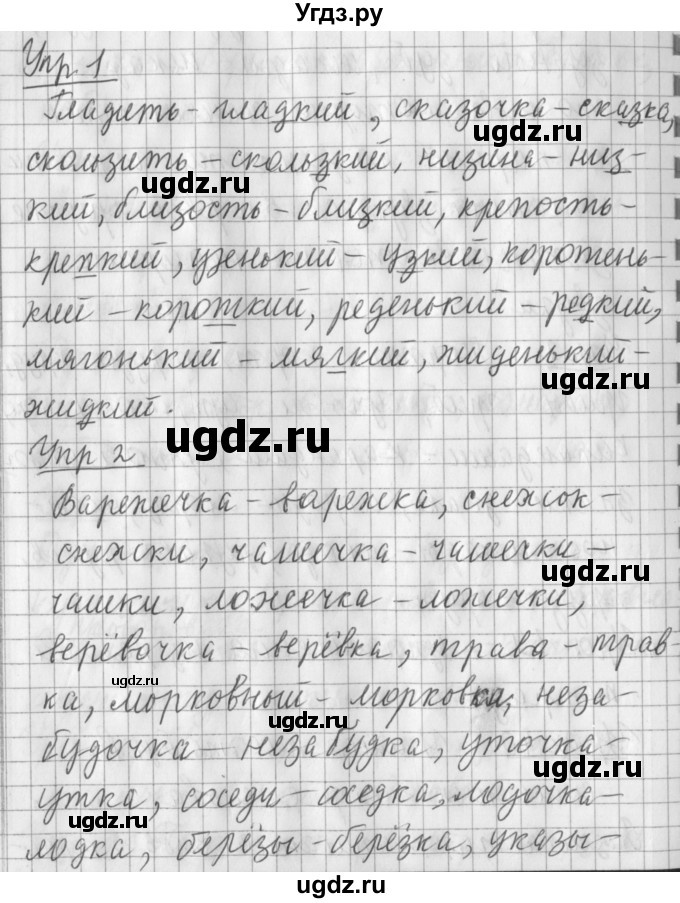 Угдз.ру
Упр. 1
Гладить - гладкий, сказочка - сказка,
скользить - скользкий, низина - низ-
кий, близость - близкий, крепость -
крепкий, узенький - узкий, коротень-
кий - короткий, реденький - редкий,
мягонький - мягкий, жиденький -
жидкий.
Упр 2
Варежечка - варежка, снежок -
снежки, чашечка - чашечки -
чашки, ложечка - ложечки,
верёвочка - верёвка, трава - трав-
ка, морковный - морковка, неза-
будочка - незабудка, уточка -
утка, соседи - соседка, лодочка -
лодка, берёзы - берёзка, указы-
ugdz.ru
ugdz.ru
ugdz.ru
ugdz.ru
ugdz.ru
ugdz.ru
ugdz.ru
ugdz.ru
ugdz.ru
ugdz.ru
ugdz.ru